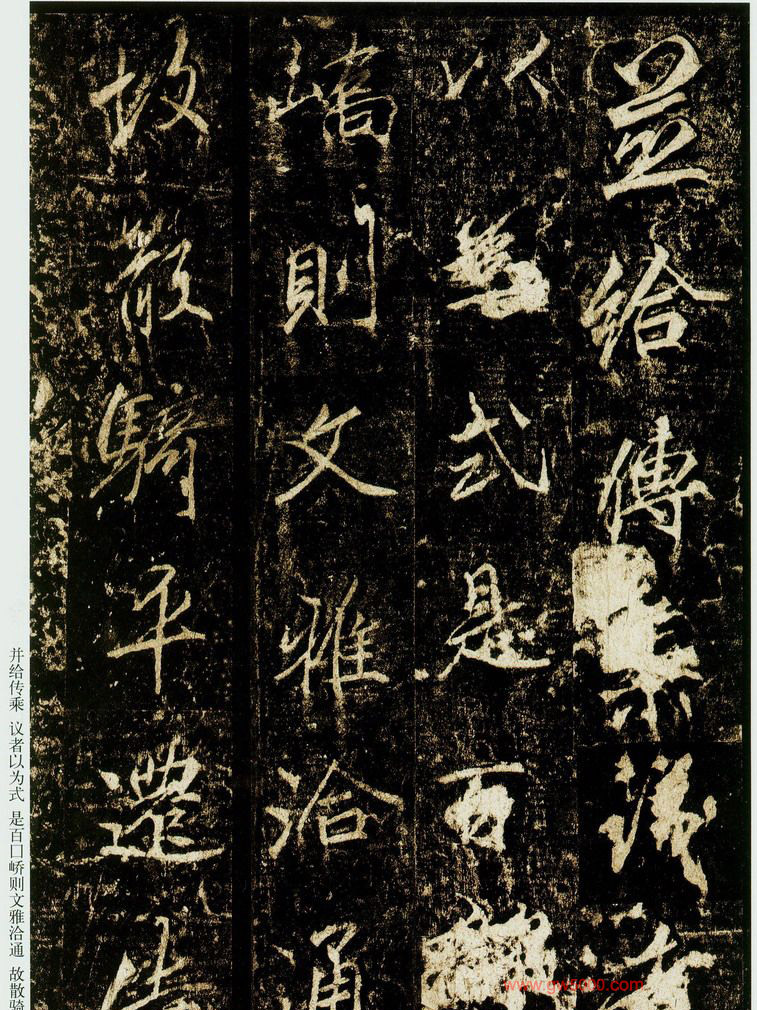 並給傳乘議者
以為式是百
嶠則文雅洽通
故散騎平遷
并给传乘 议者以为式 是百囗峤则文雅洽通 故散骑
www.gws000.com